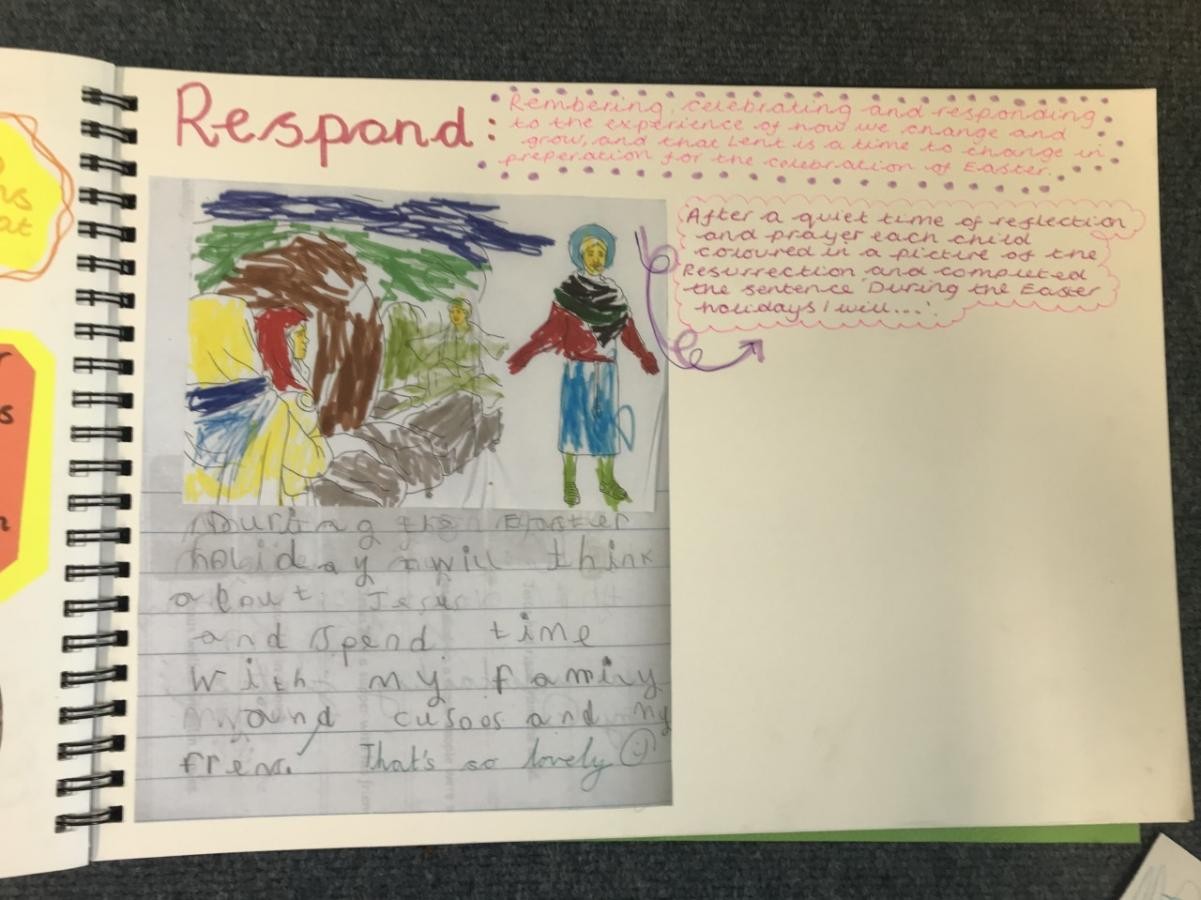 Respond:
Rembering, celebrating and responding
to the experience of how we change and
grow, and that Lent is a time to change in
preperation for the celebration of Easter.
After a quiet time of reflection
and prayer each child
coloured in a picture of the
Resurrection and completed
the sentence 'During the Easter
holidays I will....'.
During the Eastter
holiday I will think
about Jesus
and spend time
with my famiry
and cusoos and my
fren.
That's so lovely ☺
hs
at
r
s
n